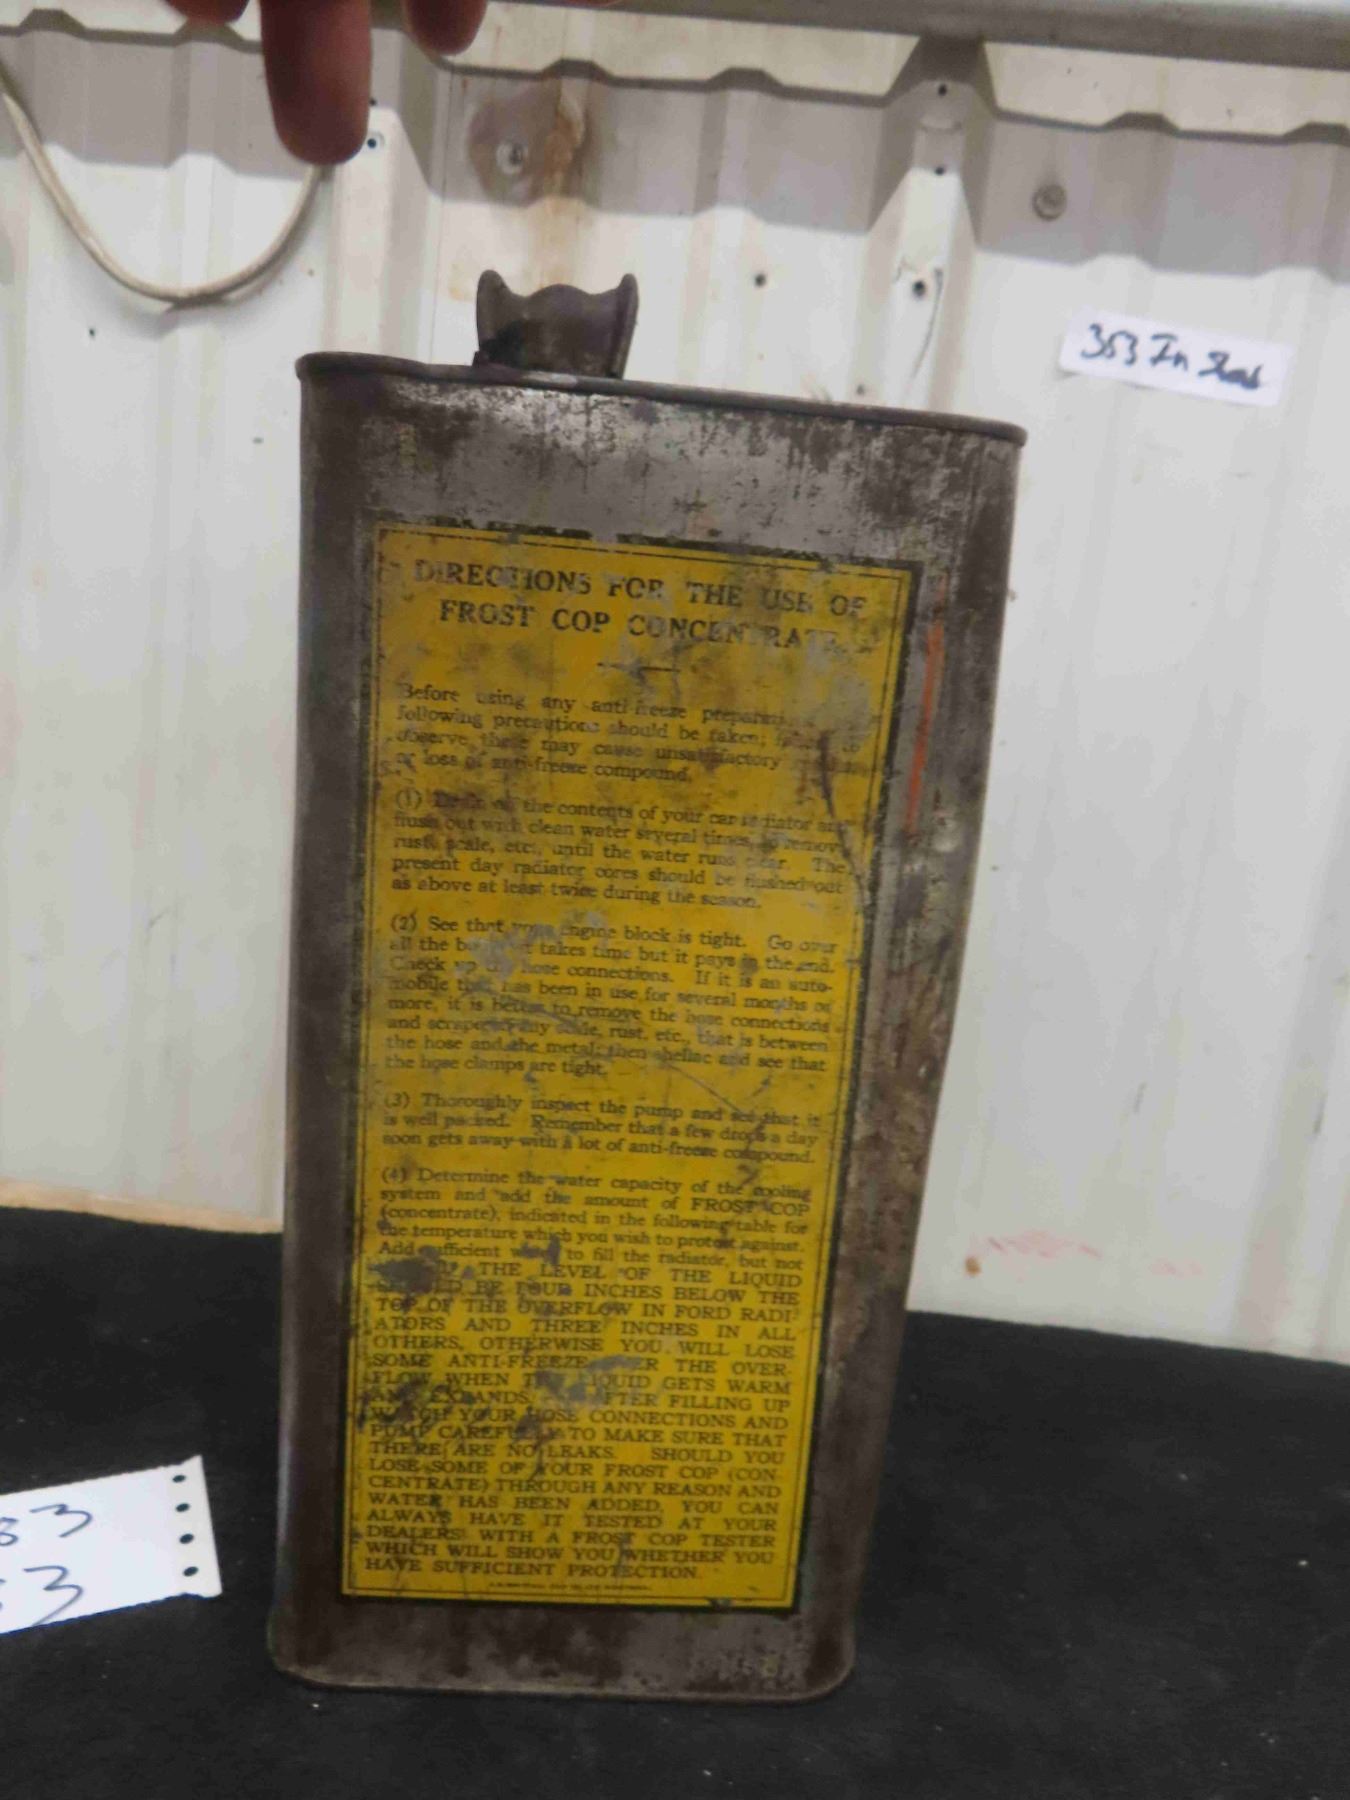 353 In Shed
DIRECTIONS FOR THE USE OF
FROST COP CONCENTRATE
Before using any anti-freeze
following precautions should be taken;
observe these may cause unsatisfactory
or loss of anti-freeze compound.
(1) the contents of your car radiator and
flush out with clean water several times, to remove
rust, scale, etc., until the water runs clear. The
present day radiator cores should be flushed out
as above at least twice during the season.
(2) See that your engine block is tight. Go over
all the it takes time but it pays in the end.
Check up the hose connections. If it is an auto-
mobile that has been in use for several months or
more, it is better to remove the hose connections
and scrape any scale, rust, etc., that is between
the hose and the metal; then shellac and see that
the hose clamps are tight.
(3) Thoroughly inspect the pump and see that it
is well packed. Remember that a few drops a day
soon gets away with a lot of anti-freeze compound.
(4) Determine the water capacity of the cooling
system and add the amount of FROST COP
(concentrate), indicated in the following table for
the temperature which you wish to protect against.
Add sufficient water to fill the radiator, but not
THE LEVEL OF THE LIQUID
SHOULD BE FOUR INCHES BELOW THE
TOP OF THE OVERFLOW IN FORD RADI-
ATORS AND THREE INCHES IN ALL
OTHERS, OTHERWISE YOU WILL LOSE
SOME ANTI-FREEZE OVER THE OVER-
FLOW WHEN THE LIQUID GETS WARM
AND EXPANDS. AFTER FILLING UP
WATCH YOUR HOSE CONNECTIONS AND
PUMP CAREFULLY TO MAKE SURE THAT
THERE ARE NO LEAKS. SHOULD YOU
LOSE SOME OF YOUR FROST COP (CON-
CENTRATE) THROUGH ANY REASON AND
WATER HAS BEEN ADDED, YOU CAN
ALWAYS HAVE IT TESTED AT YOUR
DEALERS WITH A FROST COP TESTER
WHICH WILL SHOW YOU WHETHER YOU
HAVE SUFFICIENT PROTECTION.
83
53